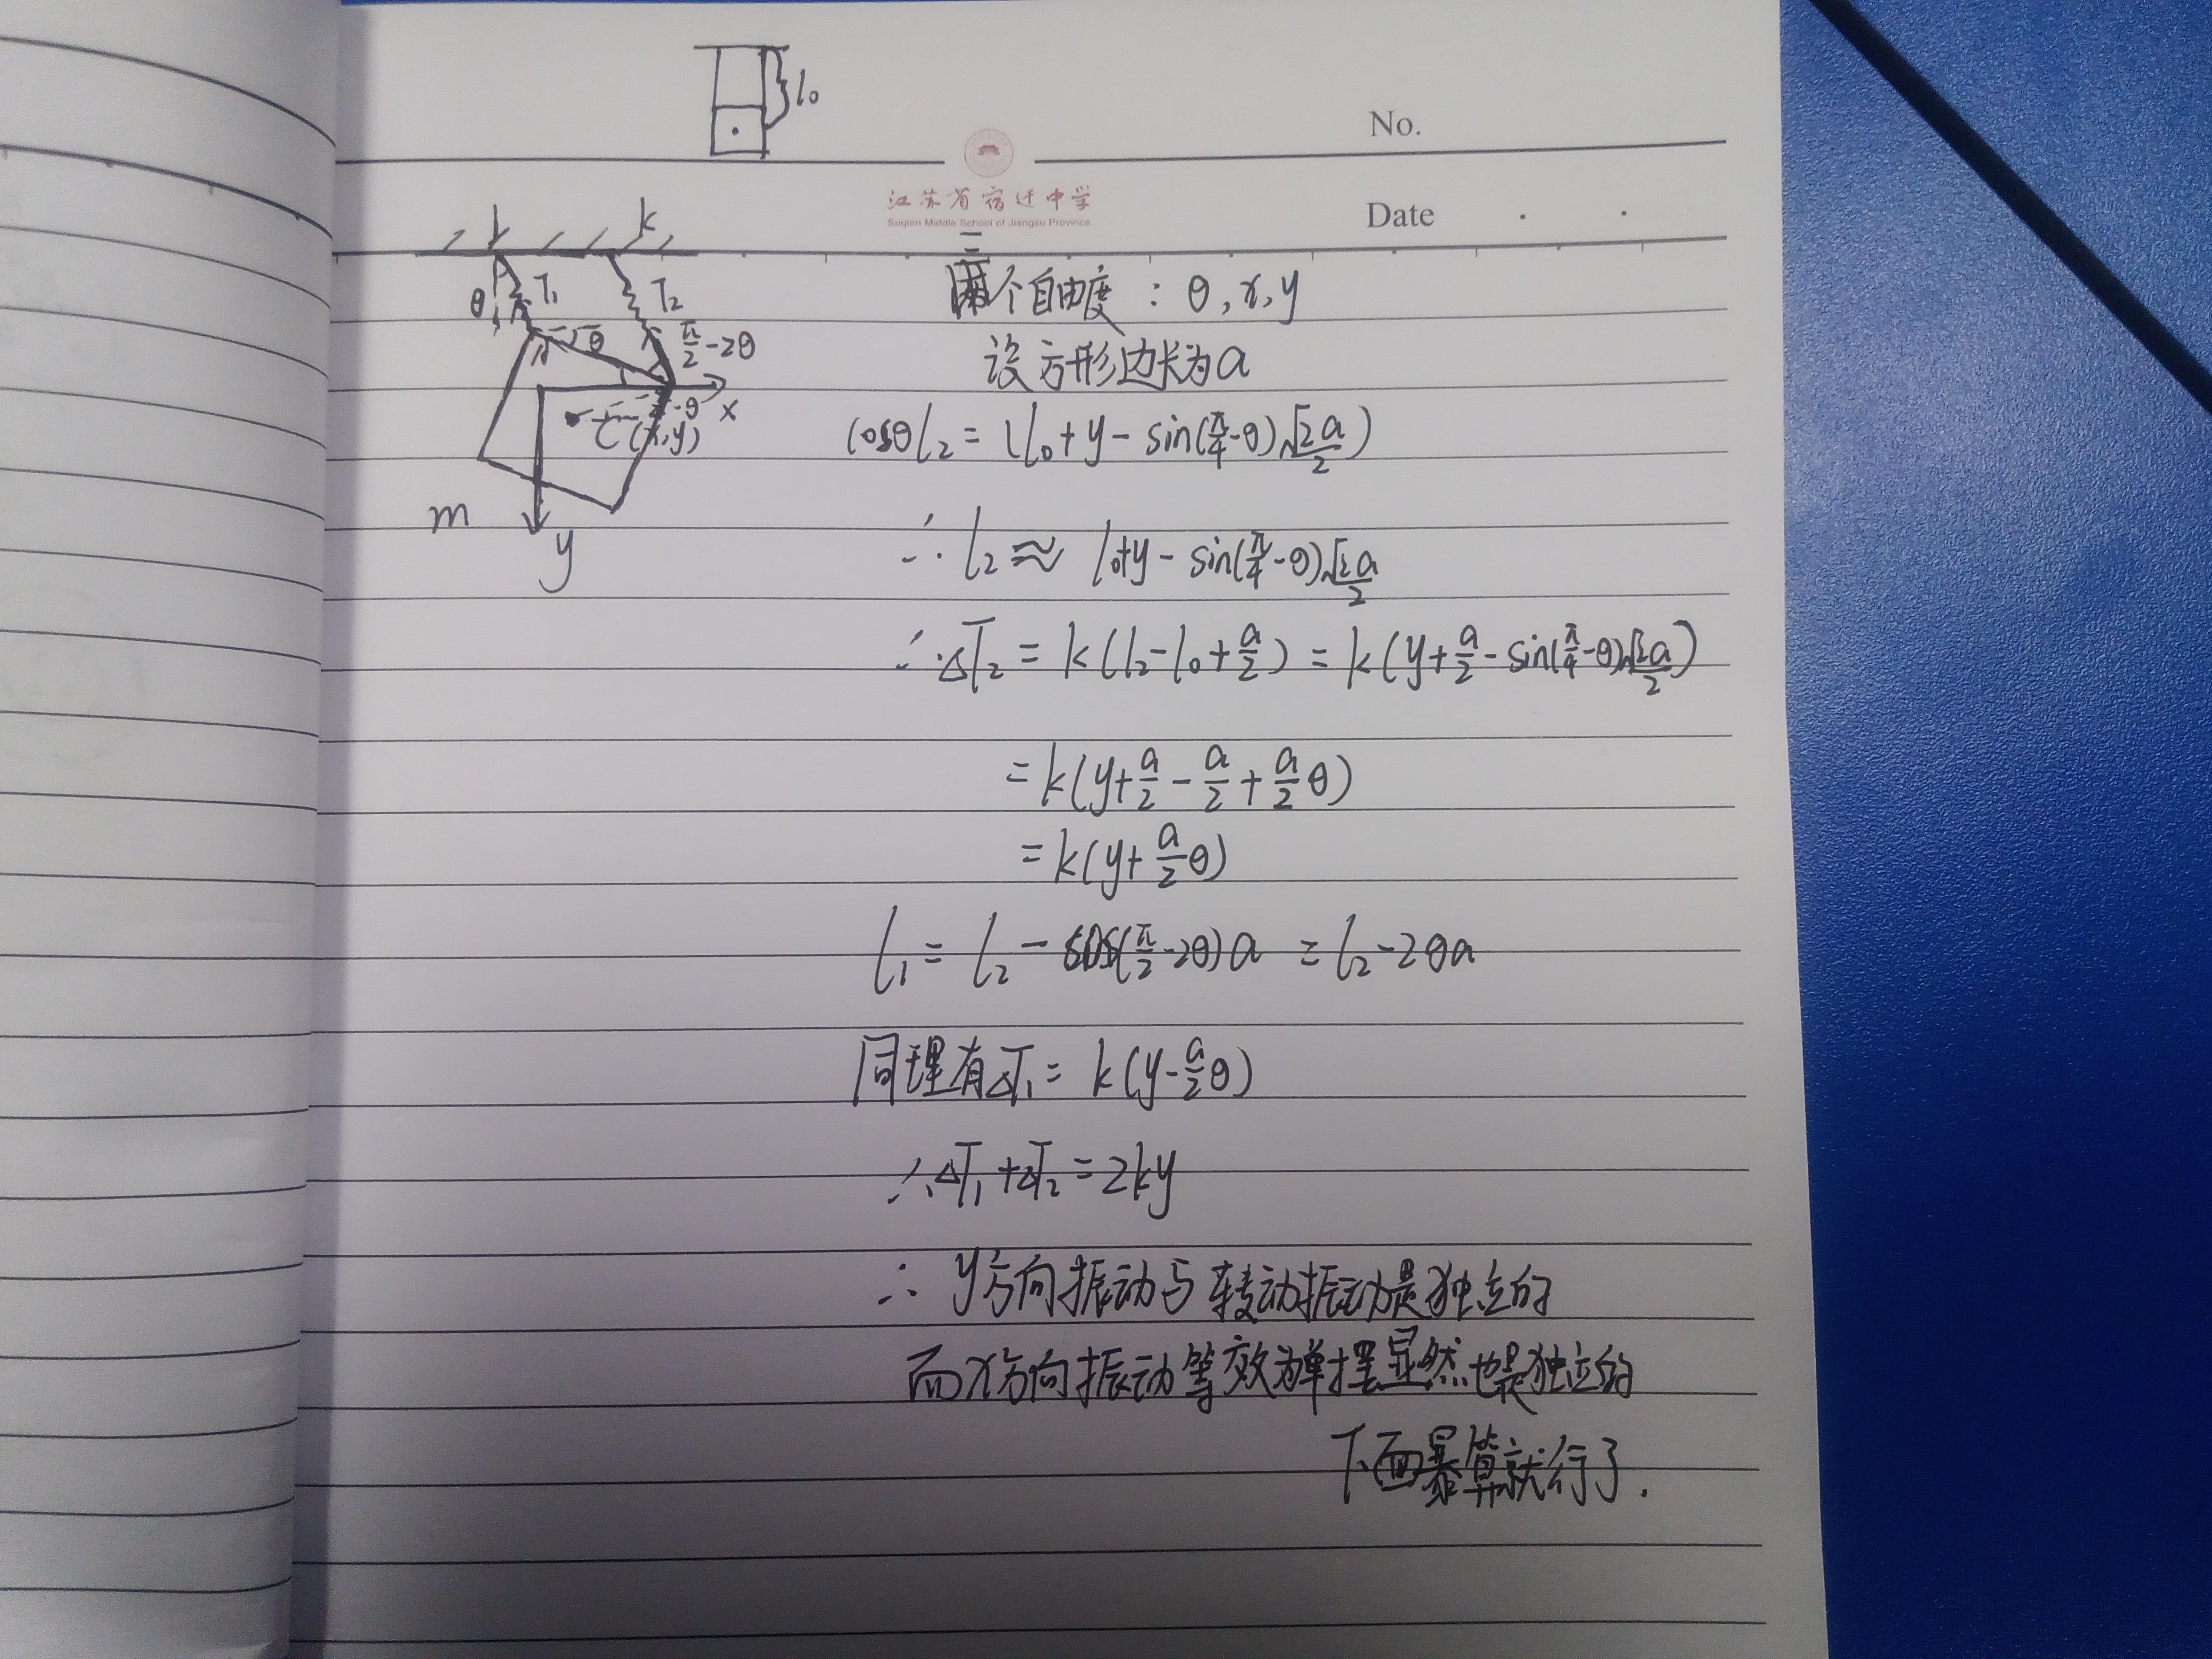 l₀
No.
江苏省宿迁中学
Suqian Middle School of Jiangsu Province
Date
k k
θ T₁ T₂
θ π/2-2θ
-θ x
C(x,y)
m
y
三个自由度：θ,x,y
设方形边长为a
cosθl₂ = (l₀+y-sin(π/4-θ)√2a/2)
∴ l₂ ≈ l₀+y-sin(π/4-θ)√2a/2
∴ΔT₂ = k(l₂-l₀+a/2) = k(y+a/2-sin(π/4-θ)√2a/2)
=k(y+a/2-a/2+a/2θ)
=k(y+a/2θ)
l₁ = l₂ - cos(π/2-2θ)a = l₂-2θa
同理有ΔT₁ = k(y-a/2θ)
∴ΔT₁+ΔT₂=2ky
∴ y方向振动与转动振动是独立的
而x方向振动等效为单摆显然也是独立的
下面暴算就行了.